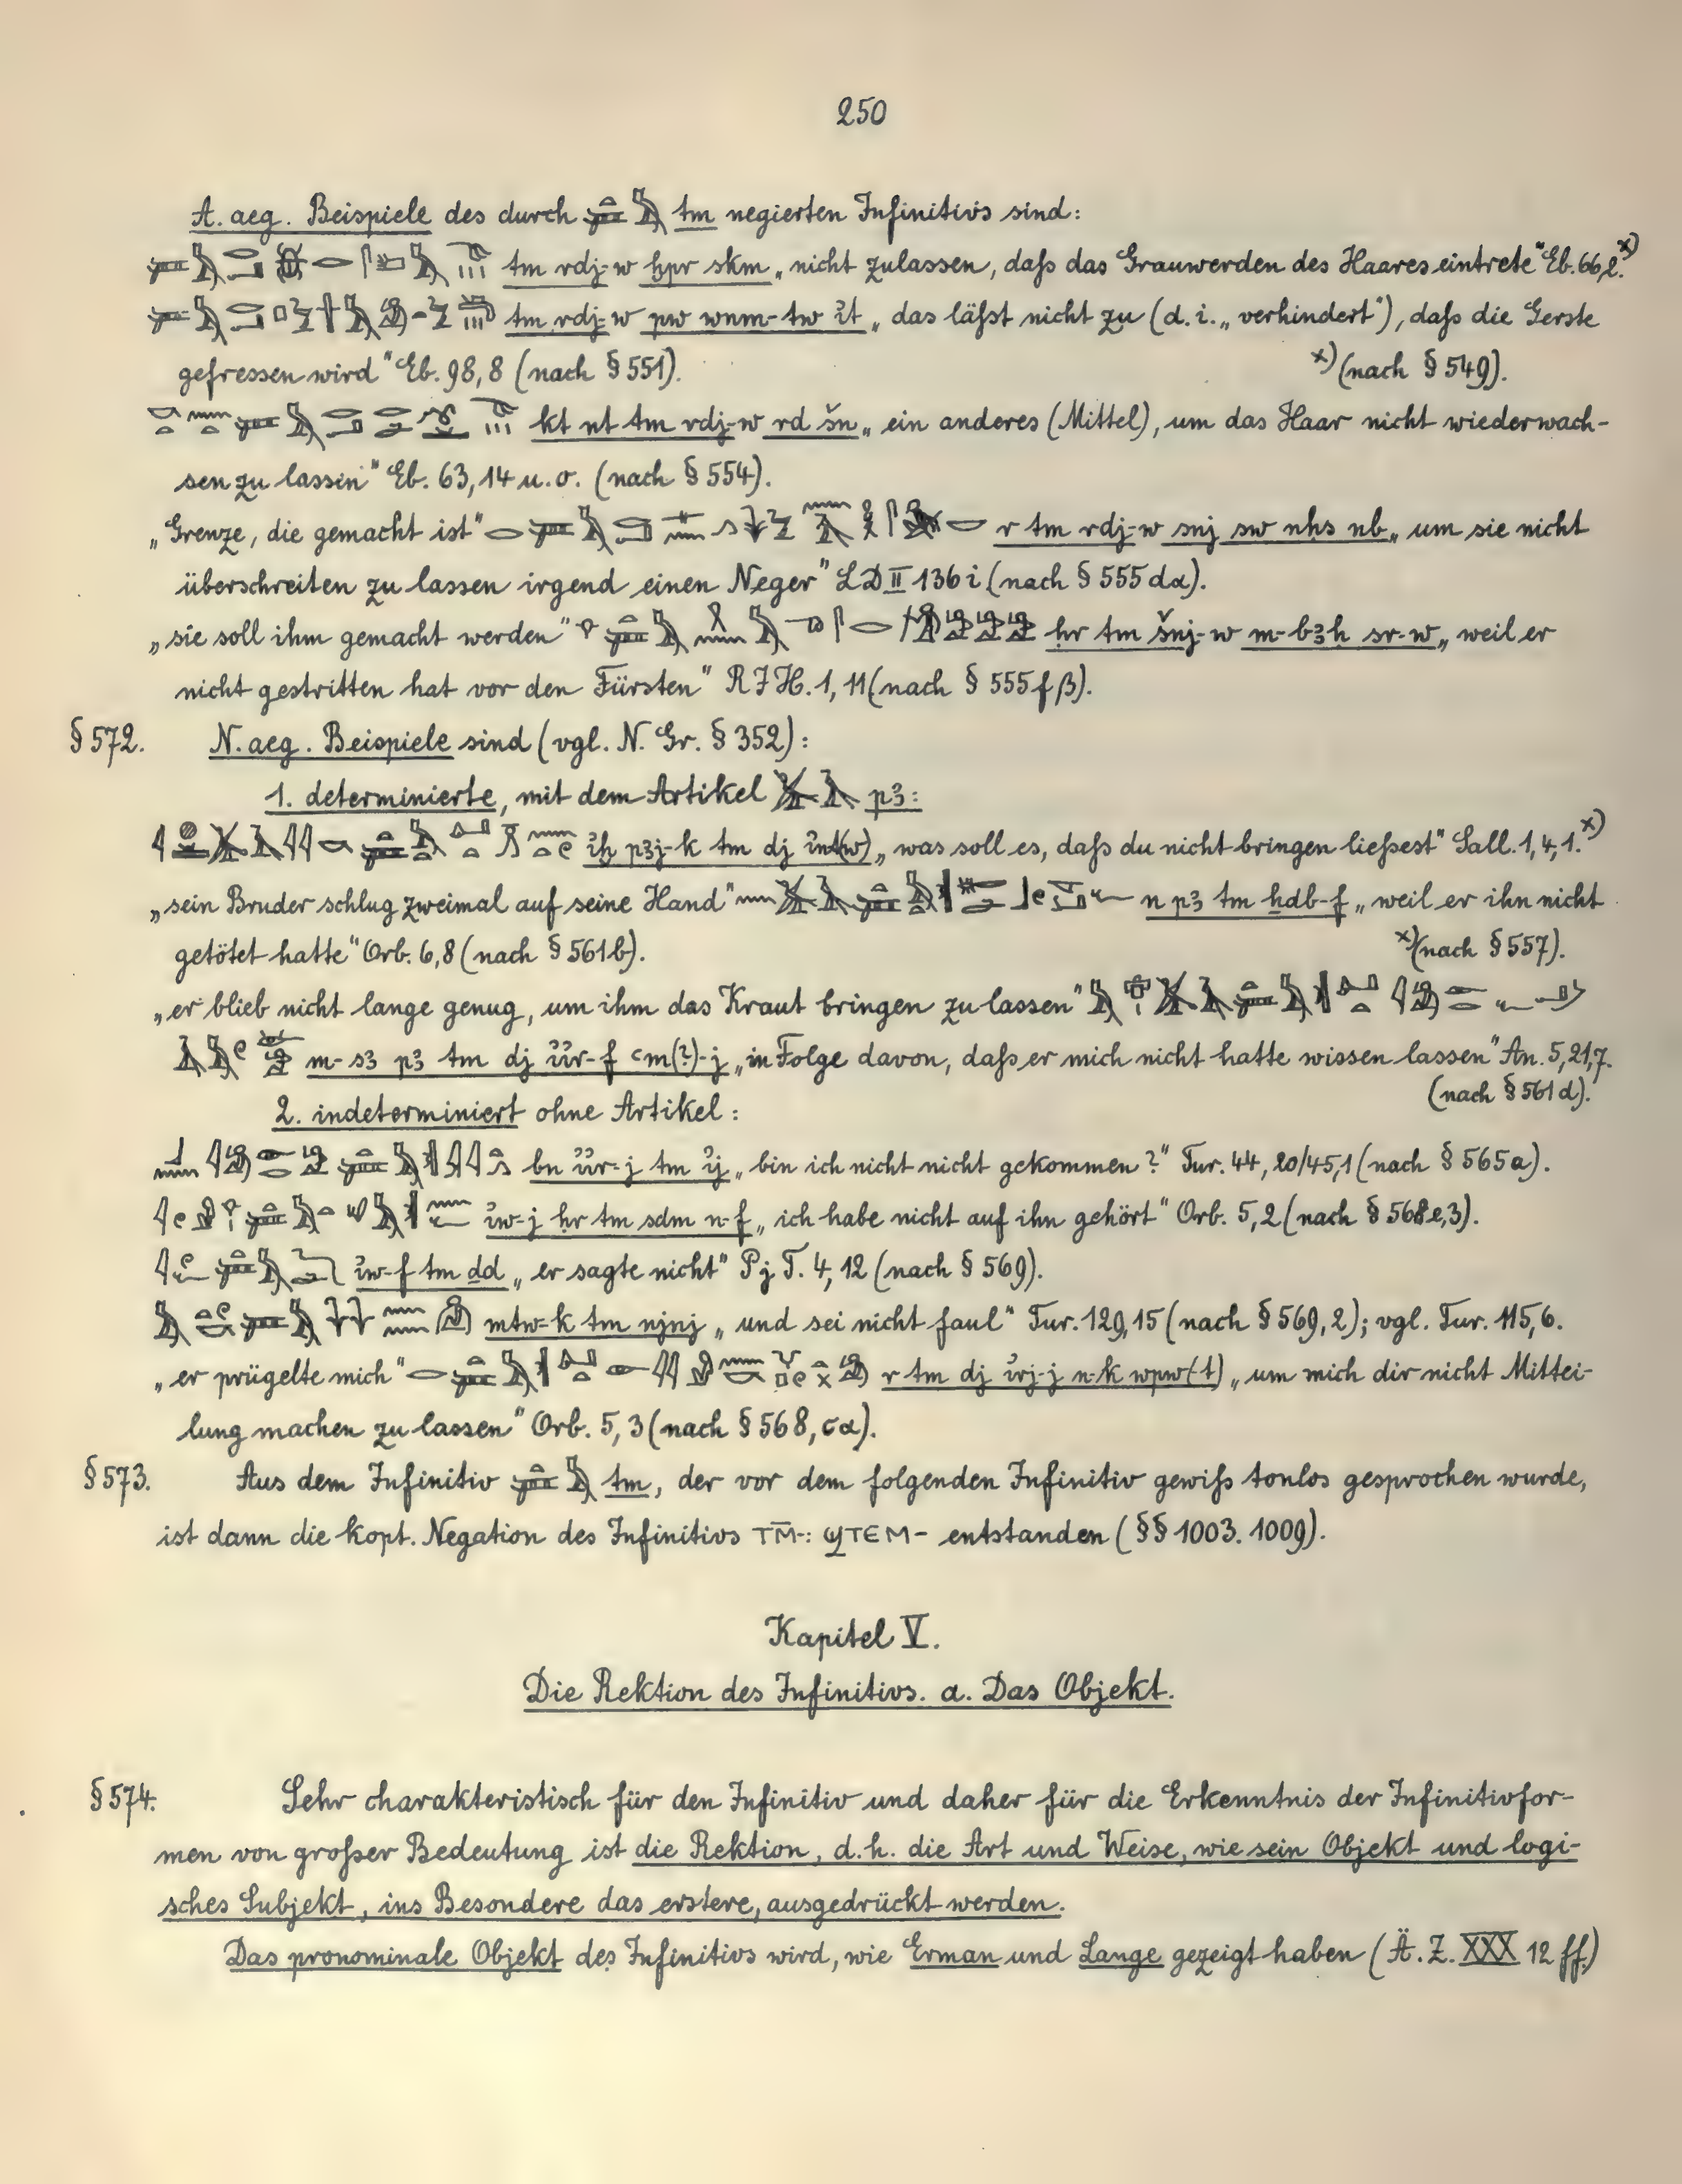 250
A. aeg. Beispiele des durch tm negierten Infinitivs sind:
tm rdj-w ḫpr skm „nicht zulassen, daß das Grauwerden des Haares eintrete" Eb. 66,2. x)
tm rdj-w pw wnm-tw ı͗t „das läßt nicht zu (d. i. „verhindert"), daß die Gerste
gefressen wird" Eb. 98, 8 (nach § 551).
x) (nach § 549).
kt nt tm rdj-w rd šn „ein anderes (Mittel), um das Haar nicht wiederwach-
sen zu lassen" Eb. 63, 14 u. o. (nach § 554).
„Grenze, die gemacht ist" r tm rdj-w snj sw nḥs nb „um sie nicht
überschreiten zu lassen irgend einen Neger" LD II 136 i (nach § 555 dα).
„sie soll ihm gemacht werden" ḥr tm šnj-w m-bꜣḥ sr-w „weil er
nicht gestritten hat vor den Fürsten" RJH. 1, 11 (nach § 555 f β).
§ 572. N. aeg. Beispiele sind (vgl. N. Gr. § 352):
1. determinierte, mit dem Artikel pꜣ:
ı͗ḫ pꜣj-k tm dj ı͗nt(w) „was soll es, daß du nicht bringen ließest" Sall. 1, 4, 1. x)
„sein Bruder schlug zweimal auf seine Hand" n pꜣ tm ḫdb-f „weil er ihn nicht
getötet hatte" Orb. 6, 8 (nach § 561 b).
x) (nach § 557).
„er blieb nicht lange genug, um ihm das Kraut bringen zu lassen"
m-sꜣ pꜣ tm dj ı͗ı͗r-f ꜥm(?)-j „in Folge davon, daß er mich nicht hatte wissen lassen" An. 5, 21, 7.
(nach § 561 d).
2. indeterminiert ohne Artikel:
bn ı͗ı͗r-j tm ı͗j „bin ich nicht nicht gekommen?" Tur. 44, 20/45, 1 (nach § 565 a).
ı͗w-j ḥr tm sdm n-f „ich habe nicht auf ihn gehört" Orb. 5, 2 (nach § 568 e, 3).
ı͗w-f tm dd „er sagte nicht" Pj T. 4, 12 (nach § 569).
mtw-k tm njnj „und sei nicht faul" Tur. 129, 15 (nach § 569, 2); vgl. Tur. 115, 6.
„er prügelte mich" r tm dj ı͗rj-j n-k wpw(t) „um mich dir nicht Mittei-
lung machen zu lassen" Orb. 5, 3 (nach § 568, cα).
§ 573. Aus dem Infinitiv tm, der vor dem folgenden Infinitiv gewiß tonlos gesprochen wurde,
ist dann die kopt. Negation des Infinitivs ⲧⲙ̄-: ϣⲧⲉⲙ- entstanden (§§ 1003. 1009).
Kapitel V.
Die Rektion des Infinitivs. a. Das Objekt.
§ 574. Sehr charakteristisch für den Infinitiv und daher für die Erkenntnis der Infinitivfor-
men von großer Bedeutung ist die Rektion, d. h. die Art und Weise, wie sein Objekt und logi-
sches Subjekt, ins Besondere das erstere, ausgedrückt werden.
Das pronominale Objekt des Infinitivs wird, wie Erman und Lange gezeigt haben (Ä. Z. XXX 12 ff.)